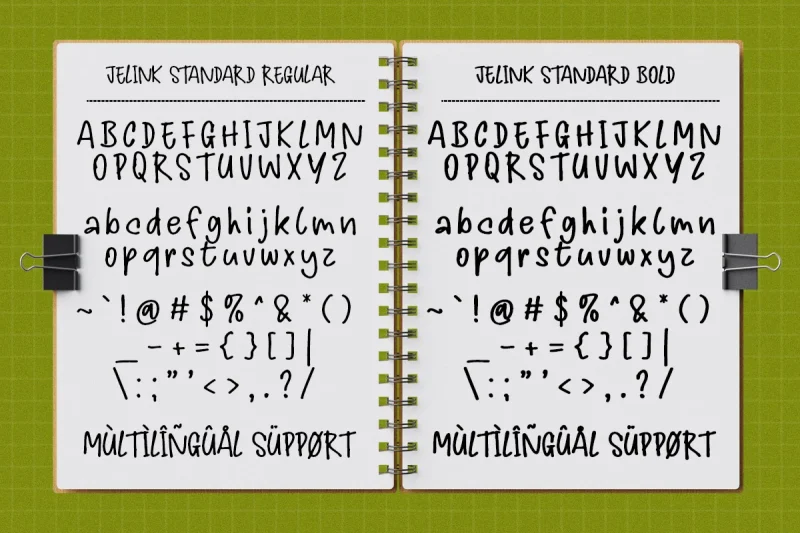 JELINK STANDARD REGULAR
ABCDEFGHIJKLMN
OPQRSTUVWXYZ
abcdefghijklmn
opqrstuvwxyz
~ ` ! @ # $ % ^ & * ( )
_ - + = { } [ ] |
\ : ; " ' < > , . ? /
MÙLTÌLÎÑGÛÅL SÜPPØRT
JELINK STANDARD BOLD
ABCDEFGHIJKLMN
OPQRSTUVWXYZ
abcdefghijklmn
opqrstuvwxyz
~ ` ! @ # $ % ^ & * ( )
_ - + = { } [ ] |
\ : ; " ' < > , . ? /
MÙLTÌLÎÑGÛÅL SÜPPØRT